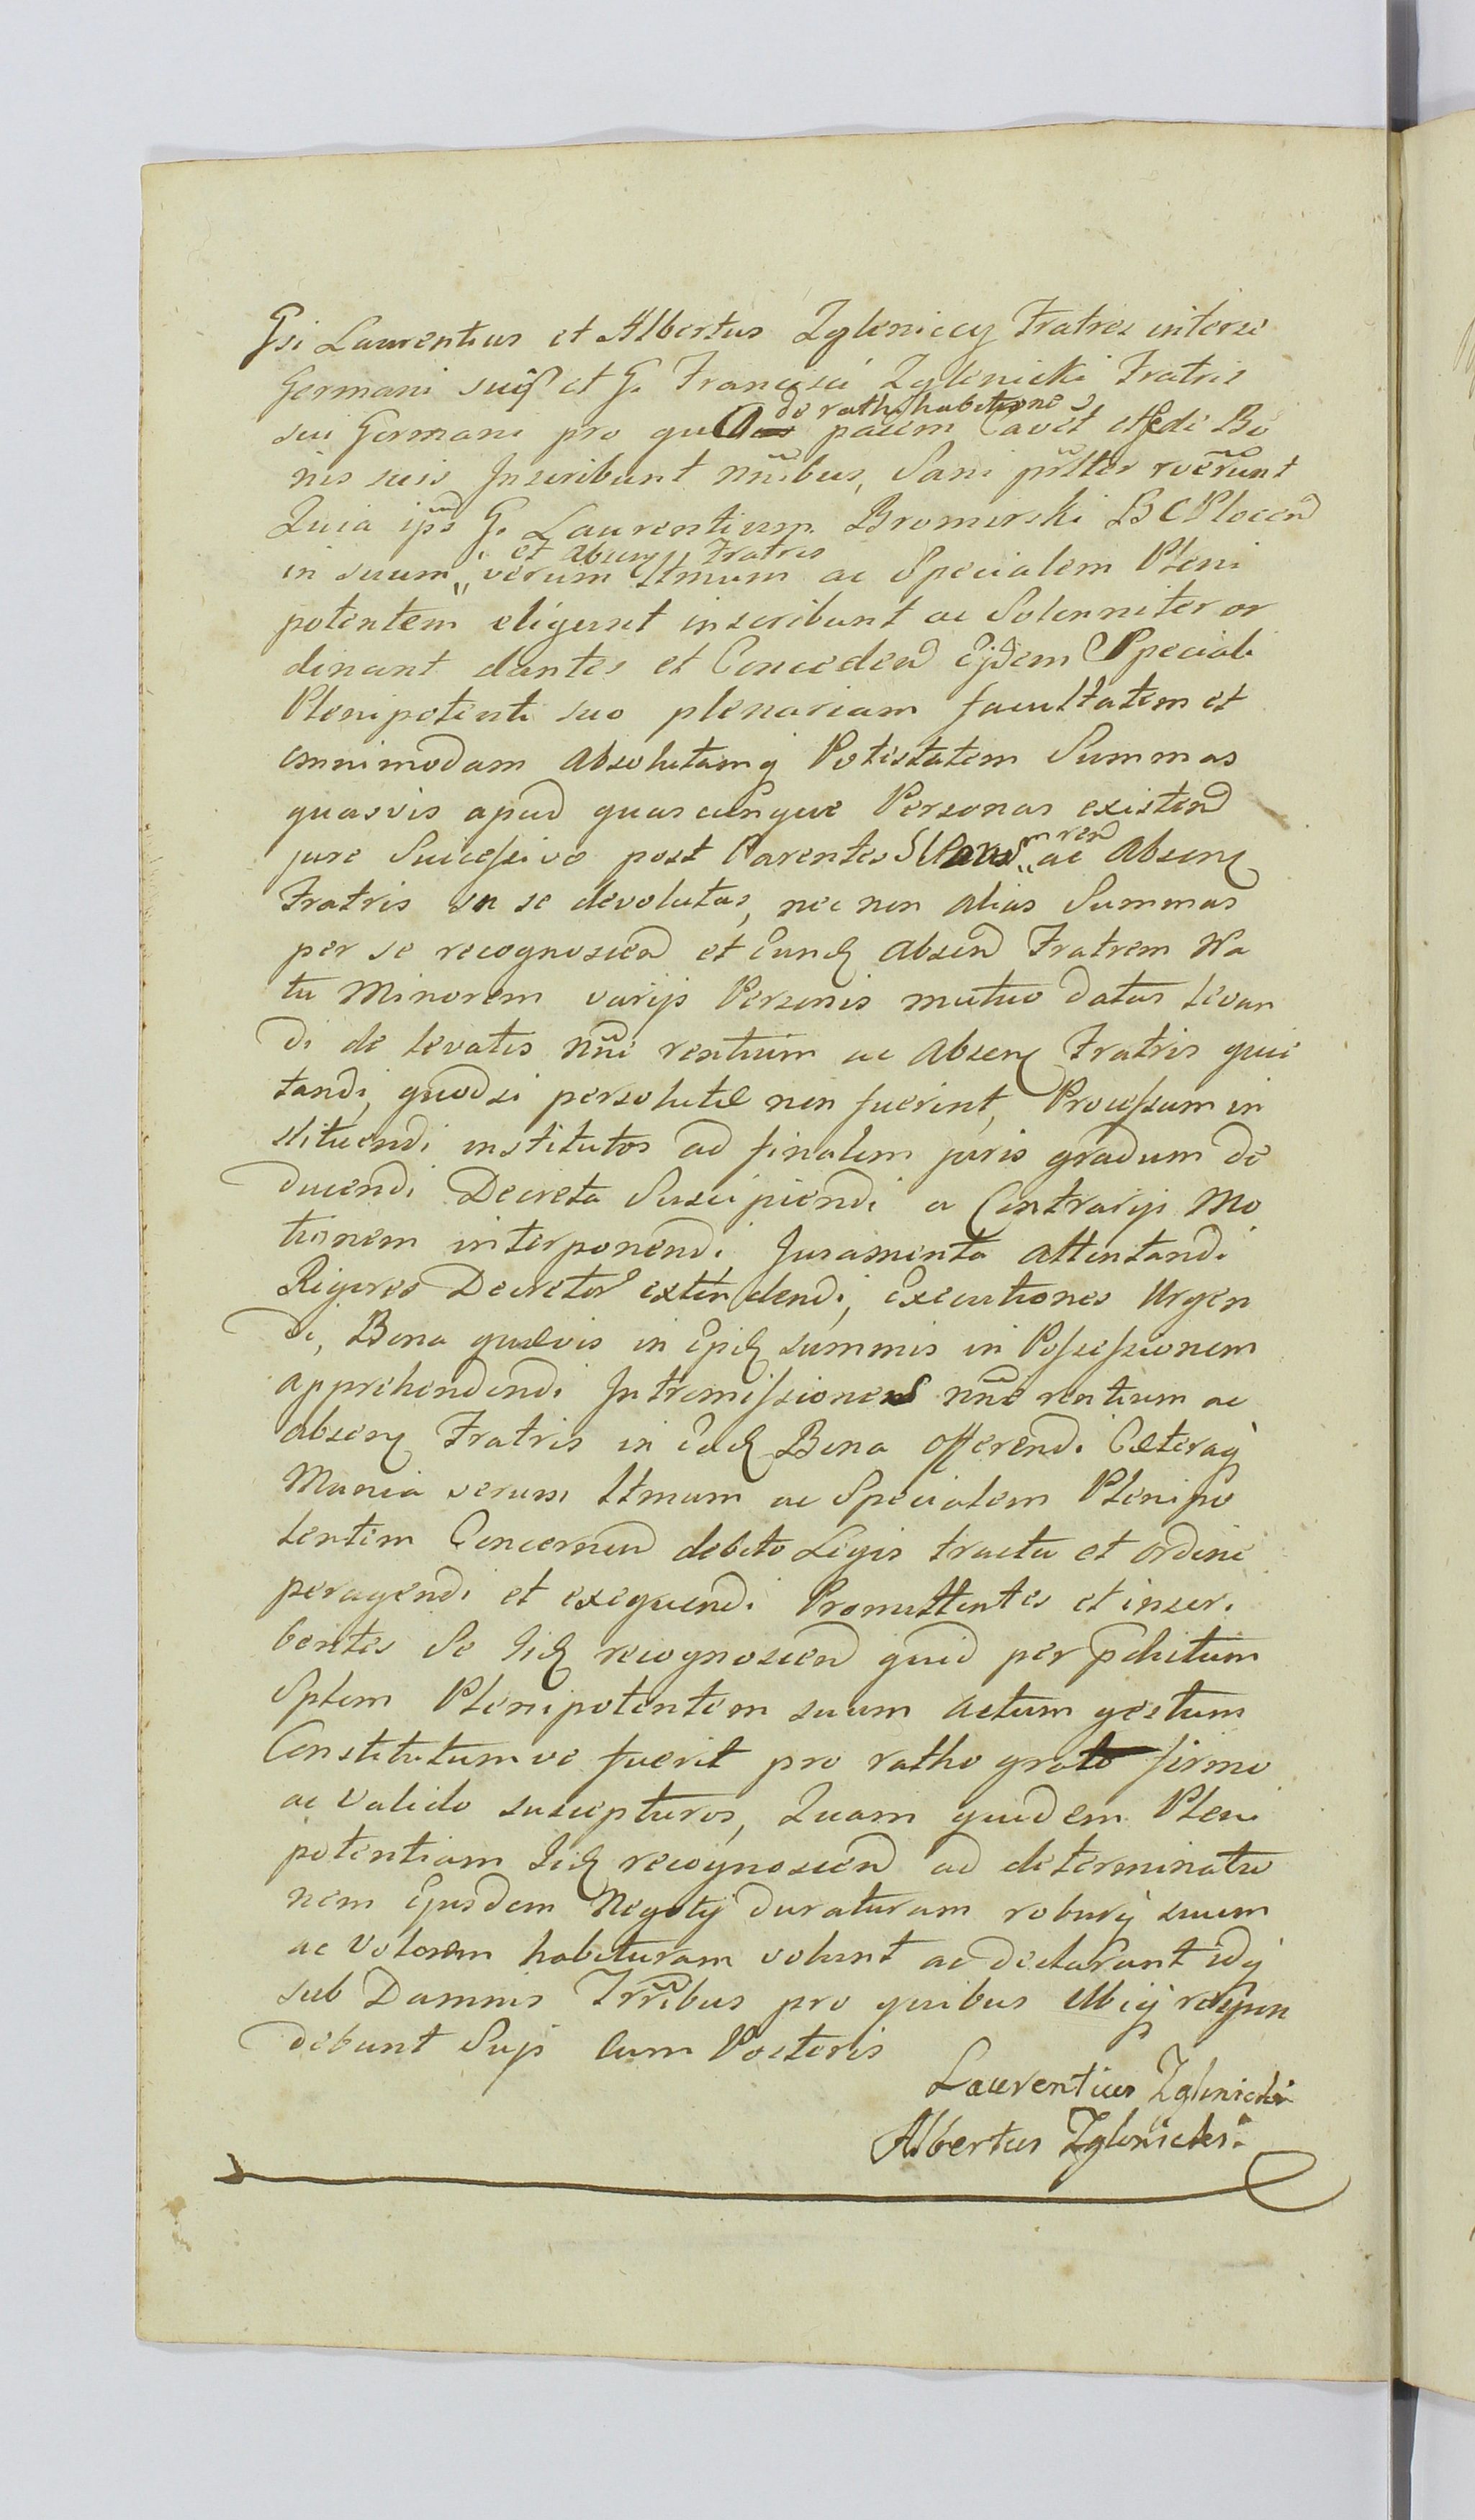 Gsi Laurentius et Albertus Zgleniccy Fratres interse
Germani suoq et G. Francisci Zglenicki Fratris
de rathihabitione
sui Germani pro quo pariem Cavet et de Bo
nis suis Inscribunt nnibus, Sani pnlter rverunt
Quia ips G. Laurentium Bromirski BCPlocen
et absen Fratris
in suum verum ltmum ac Specialem Pleni
potentem eligunt inscribunt ac Solenniter or
dinant dantes et Conceden ejdem Speciali
Plenipotenti suo plenariam facultatem et
omnimodam Absolutamq Potestatem Summas
quasvis apud quascunque Personas existen
m ren
jure Successivo post Parentes Suos ac Absen
Fratris in se devolutas, nec non alias Summas
per se recognoscen et eund absen Fratrem Na
tu Minorem varijs Personis mutuo datas levan
di de levatis nne rentium ac Absen Fratris quie
tandi, quodsi persolutæ non fuerint, Processum in
stituendi institutos ad finalem juris gradum de
ducendi Decreta Suscipiendi a Contrarijs Mo
tionem interponendi Juramenta attentandi
Rigores Decretor extendendi, Executiones Urgen
di, Bona quævis in Epid summis in Possessionem
apprehendendi Intromissiones nne rentium ac
absen Fratris in Ead Bona offerendi Cæteraq
Munia verum ltmum ac Specialem Plenipo
tentem Concernen debito Legis tractu et ordine
peragendi et exequendi Promittentes et inscri
bentes Se Iid recognoscen quid per pdictum
Splem Plenipotentem suum actum gestum
Constitutumve fuerit pro ratho grato firmo
ac valido suscepturos, Quam quidem Pleni
potentiam Iid recognoscen ad determinatio
nem Ejusdem Negotij duraturam roburq suum
ac Valorem habituram volunt ac declarant idq
sub Damnis Trribus pro quibus Ubiq respon
debunt Suji cum Posteris
Laurentius Zglenicki
Albertus Zglenicki